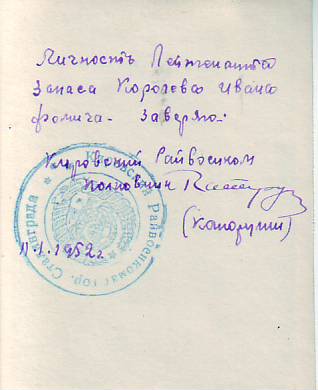 Личность Лейтенанта
Запаса Королева Ивана
Фомича - Заверяю.
Кировский Райвоенком
Полковник
11.1.1952г.
Кировский Райвоенкомат гор. Сталинграда